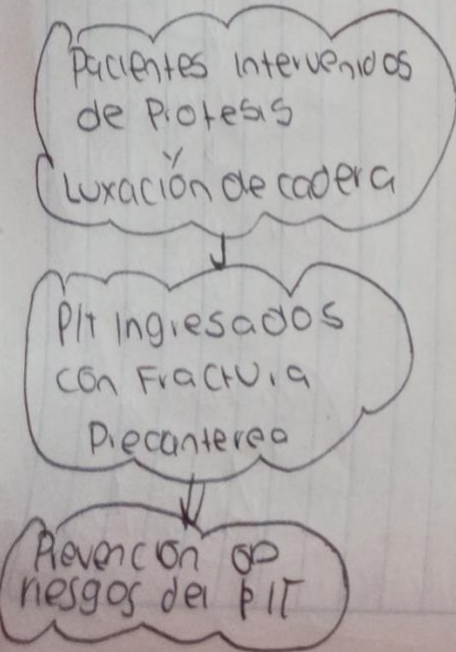 Pacientes Intervenidos
de Protesis
Y
Luxación de cadera
P/t Ingresados
con Fractura
Precantereo
Prevención de
riesgos del P/T